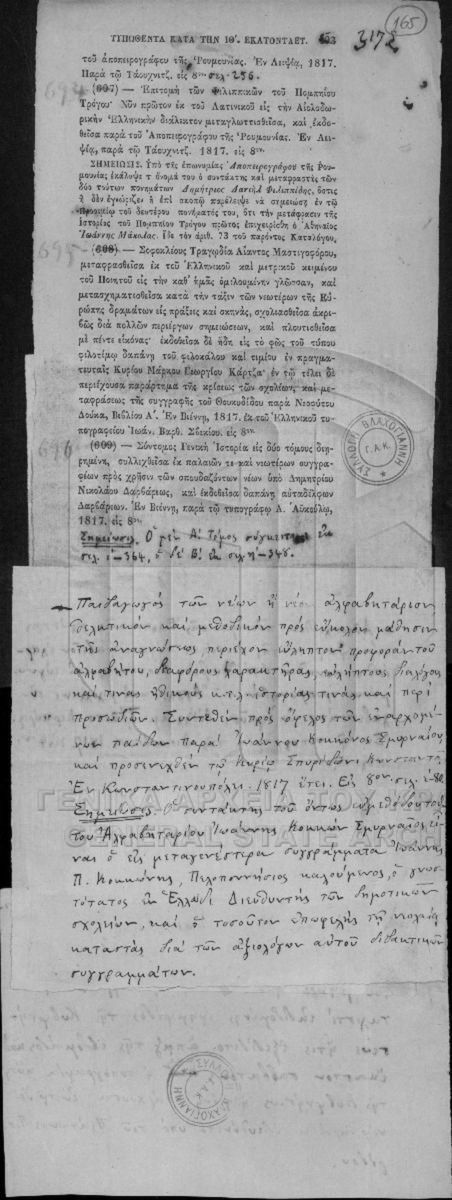 165
ΤΥΠΩΘΕΝΤΑ ΚΑΤΑ ΤΗΝ ΙΘ΄. ΕΚΑΤΟΝΤΑΕΤ.
3172
τοῦ ἀποπειρογράφου τῆς Ῥουμουνίας. Ἐν Λειψίᾳ, 1817.
Παρὰ τῷ Τάουχνιτζ. εἰς 8ον σελ. 256.
694
(607) — Ἐπιτομὴ τῶν Φιλιππικῶν τοῦ Πομπηΐου
Τρόγου· Νῦν πρῶτον ἐκ τοῦ Λατινικοῦ εἰς τὴν Αἰολοδω-
ρικὴν Ἑλληνικὴν διάλεκτον μεταγλωττισθεῖσα, καὶ ἐκδο-
θεῖσα παρὰ τοῦ Ἀποπειρογράφου τῆς Ῥουμουνίας. Ἐν Λει-
ψίᾳ, παρὰ τῷ Τάουχνιτζ. 1817. εἰς 8ον
ΣΗΜΕΙΩΣΙΣ. Ὑπὸ τῆς ἐπωνυμίας Ἀποπειρογράφου τῆς Ῥου-
μουνίας ἐκάλυψε τ’ ὄνομά του ὁ συντάκτης καὶ μεταφραστὴς τῶν
δύο τούτων πονημάτων Δημήτριος Δανιὴλ Φιλιππίδης, ὅστις
ἢ δὲν ἐγνώριζεν ἢ ἐπὶ σκοπῷ παρέλειψε νὰ σημειώσῃ ἐν τῷ
Προοιμίῳ τοῦ δευτέρου πονήματός του, ὅτι τὴν μετάφρασιν τῆς
Ἱστορίας τοῦ Πομπηΐου Τρόγου πρῶτος ἐπεχειρίσθη ὁ Ἀθηναῖος
Ἰωάννης Μάκολας. Ἴδε τὸν ἀριθ. 73 τοῦ παρόντος Καταλόγου.
695
(608) — Σοφοκλέους Τραγῳδία Αἴαντος Μαστιγοφόρου,
μεταφρασθεῖσα ἐκ τοῦ Ἑλληνικοῦ καὶ μετρικοῦ κειμένου
τοῦ Ποιητοῦ εἰς τὴν καθ’ ἡμᾶς ὁμιλουμένην γλῶσσαν, καὶ
μετασχηματισθεῖσα κατὰ τὴν τάξιν τῶν νεωτέρων τῆς Εὐ-
ρώπης δραμάτων εἰς πράξεις καὶ σκηνὰς, σχολιασθεῖσα ἀκρι-
βῶς διὰ πολλῶν περιέργων σημειώσεων, καὶ πλουτισθεῖσα
μὲ πέντε εἰκόνας· ἐκδοθεῖσα δὲ ἤδη εἰς τὸ φῶς τοῦ τύπου
φιλοτίμῳ δαπάνῃ τοῦ φιλοκάλου καὶ τιμίου ἐν πραγμα-
τευταῖς Κυρίου Μάρκου Γεωργίου Κάρτζα· ἐν τῷ τέλει δὲ
περιέχουσα παράρτημα τῆς κρίσεως τῶν σχολίων, καὶ με-
ταφράσεως τῆς συγγραφῆς τοῦ Θουκυδίδου παρὰ Νεοφύτου
Δούκα, Βιβλίου Α΄. Ἐν Βιέννῃ, 1817. ἐκ τοῦ Ἑλληνικοῦ τυ-
πογραφείου Ἰωάν. Βαρθ. Σβεκίου. εἰς 8ον
696
(609) — Σύντομος Γενικὴ Ἱστορία εἰς δύο τόμους διῃ-
ρημένη, συλλεχθεῖσα ἐκ παλαιῶν τε καὶ νεωτέρων συγγρα-
φέων πρὸς χρῆσιν τῶν σπουδαζόντων νέων ὑπὸ Δημητρίου
Νικολάου Δαρβάρεως, καὶ ἐκδοθεῖσα δαπάνῃ αὐταδέλφων
Δαρβάρεων. Ἐν Βιέννῃ, παρὰ τῷ τυπογράφῳ Λ. Αἰκούλῳ,
1817. εἰς 8ον
Σημείωσις. Ὁ μὲν Α΄. Τόμος σύγκειται ἐκ
σελ. — 364, ὁ δὲ Β΄. ἐκ σελ. — 348.
— Παιδαγωγὸς τῶν νέων ἢ νέον ἀλφαβητάριον
θελκτικὸν καὶ μεθοδικὸν πρὸς εὔκολον μάθησιν
τῆς ἀναγνώσεως περιέχον εὔληπτον προφορὰν τοῦ
ἀλφαβήτου, διαφόρους χαρακτῆρας, εὐλήπτους διαλόγους
καί τινας ἠθικοὺς κ.τ.λ. ἱστορίας τινὰς, καὶ περὶ
προσῳδιῶν. Συντεθὲν πρὸς ὄφελος τῶν ἐναρχομέ-
νων παίδων παρὰ Ἰωάννου Κοκκόνος Σμυρναίου,
καὶ προσενεχθὲν τῷ Κυρίῳ Σπυρίδωνι
Ἐν Κωνσταντινουπόλει. 1817 ἔτει. Εἰς 8ον. σελ.
Σημείωσις. Ὁ συντάκτης τοῦ ὄντως εὐμεθοδωτά-
του Ἀλφαβηταρίου Ἰωάννης Κοκκών Σμυρναῖος εἶ-
ναι ὁ εἰς μεταγενέστερα συγγράμματα Ἰωάννης
Π. Κοκκώνης, Πελοποννήσιος καλούμενος, ὁ γνωσ-
τότατος ἐν Ἑλλάδι Διευθυντὴς τῶν δημοτικῶν
σχολείων, καὶ ὁ τοσοῦτον ἐπωφελὴς τῇ νεολαίᾳ
καταστὰς διὰ τῶν ἀξιολόγων αὐτοῦ διδακτικῶν
συγγραμμάτων.
ΣΥΛΛΟΓΗ ΒΛΑΧΟΓΙΑΝΝΗ
Γ.Α.Κ.